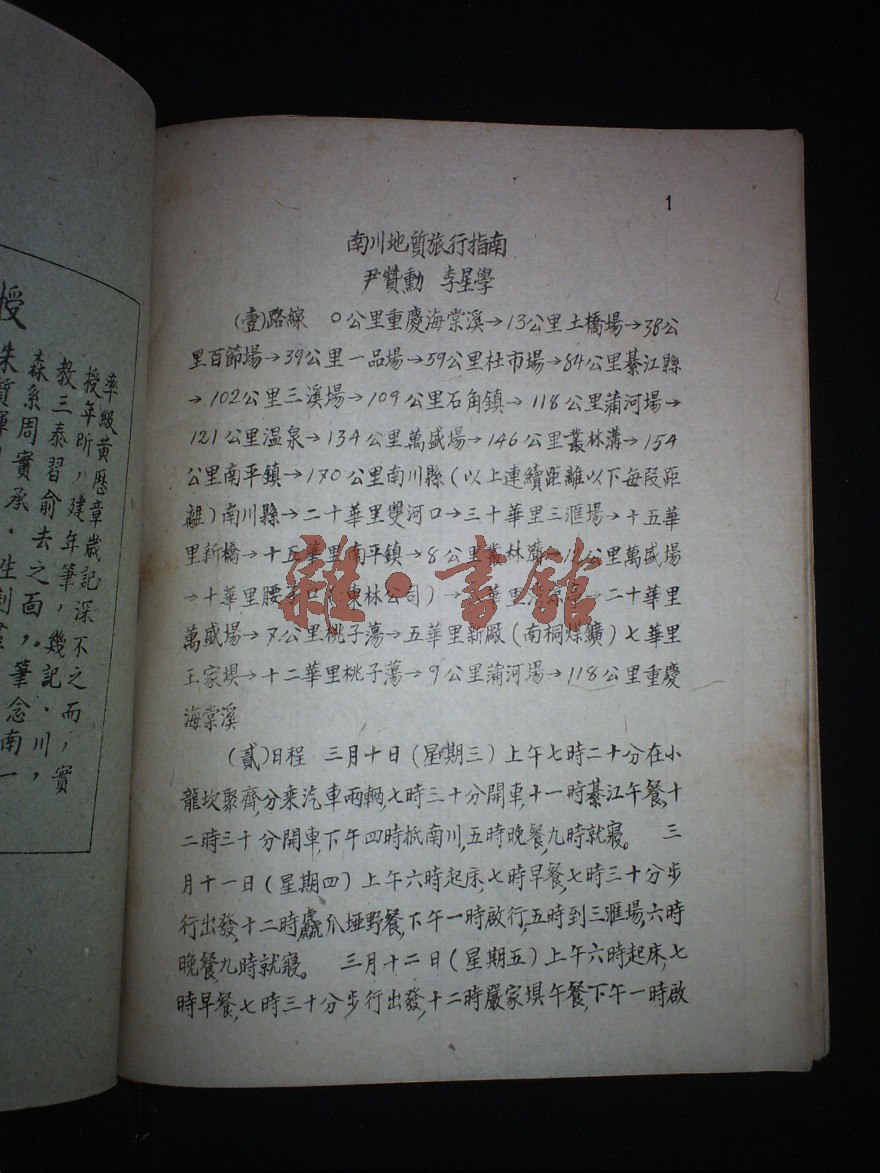 1
南川地質旅行指南
尹贊勳 李星學
(壹)路線 0公里重慶海棠溪→13公里土橋場→38公
里百節場→39公里一品場→59公里杜市場→84公里綦江縣
→102公里三溪場→109公里石角鎮→118公里蒲河場→
121公里溫泉→134公里萬盛場→146公里叢林溝→154
公里南平鎮→170公里南川縣(以上連續距離以下每段距
離)南川縣→二十華里雙河口→三十華里三滙場→十五華
里新橋→十五華里南平鎮→8公里叢林溝→12公里萬盛場
→十華里腰子口(東林公司)→華里→二十華里
萬盛場→7公里桃子蕩→五華里新廠(南桐煤鑛)七華里
王家埧→十二華里桃子蕩→9公里蒲河場→118公里重慶
海棠溪
(貳)日程 三月十日(星期三)上午七時二十分在小
龍坎聚齊,分乘汽車兩輛,七時三十分開車,十一時綦江午餐,十
二時三十分開車,下午四時抵南川,五時晚餐,九時就寢。 三
月十一日(星期四)上午六時起床,七時早餐,七時三十分步
行出發,十二時爪埡野餐,下午一時啟行,五時到三滙場,六時
晚餐,九時就寢。 三月十二日(星期五)上午六時起床,七
時早餐,七時三十分步行出發,十二時嚴家埧午餐,下午一時啟
雜·書館
授
率級黄歷章歲記深不之而,實
授年昕,建年筆,幾記·川,
教三泰習俞去之面。筆念南一
森系周實承·